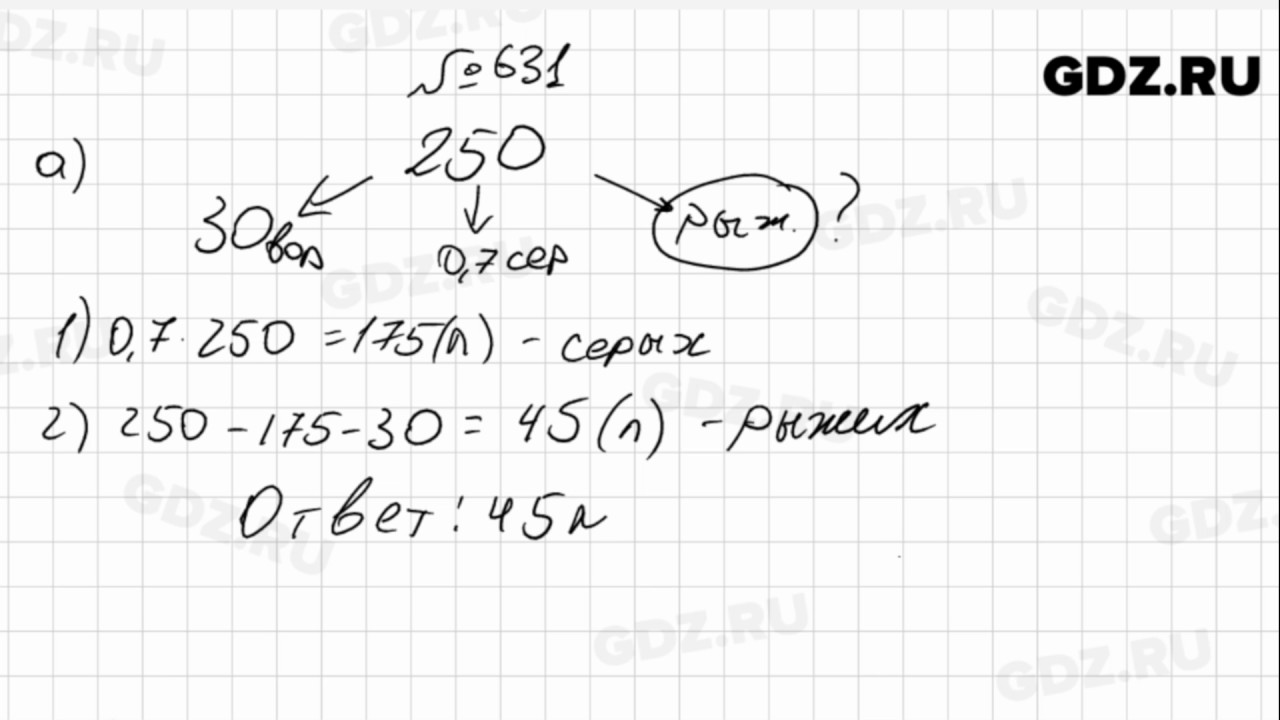 №631
GDZ.RU
а) 250
30 вор 0,7 сер рыж. ?
1) 0,7 · 250 = 175(л) - серых
2) 250 - 175 - 30 = 45 (л) - рыжих
Ответ: 45 л